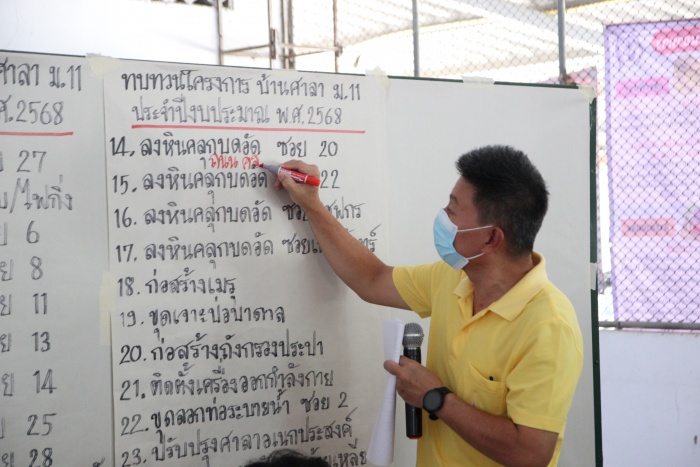 ศาลา ม.11
พ.ศ.2568
27
/ไฟกิ่ง
6
8
11
13
ย 14
25
28
ทบทวนโครงการ บ้านศาลา ม.11
ประจำปีงบประมาณ พ.ศ.2568
14. ลงหินคลุกบดอัด ซอย 20
ถนน คส
15. ลงหินคลุกบดอัด 22
16. ลงหินคลุกบดอัด ซอย
17. ลงหินคลุกบดอัด ซอย
18. ก่อสร้างเมรุ
19. ขุดเจาะบ่อบาดาล
20. ก่อสร้างถังกรองประปา
21. ติดตั้งเครื่องออกกำลังกาย
22. ขุดลอกท่อระบายน้ำ ซอย 2
23. ปรับปรุงศาลาอเนกประสงค์